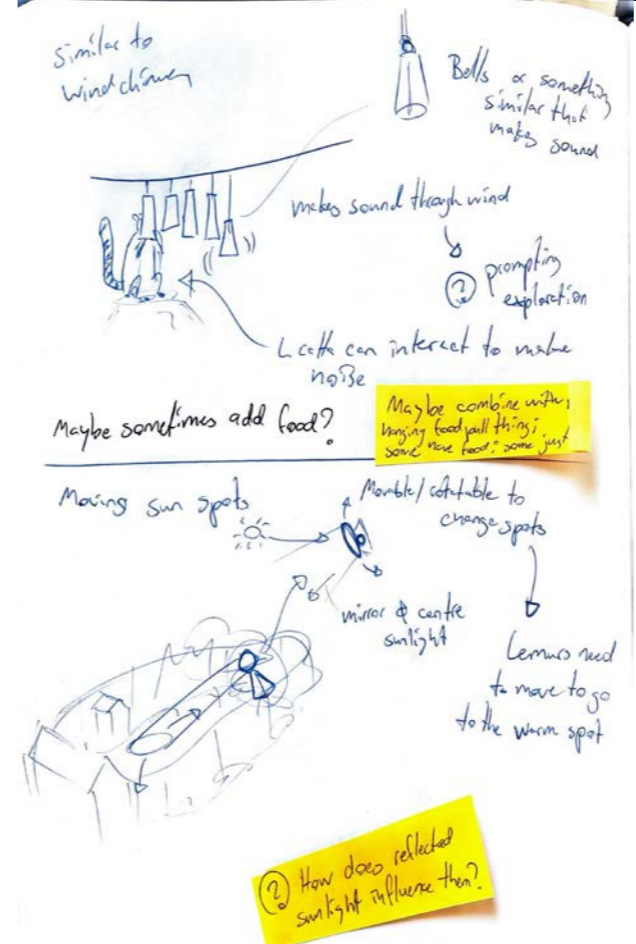 similar to
windchimes
Bells or something
similar that
makes sound
makes sound through wind
? prompting
exploration
L. catta can interact to make
noise
Maybe sometimes add food?
Maybe combine with
hanging food pull things;
some have food; some just
Moving sun spots
Movable/rotatable to
change spots
mirror & centre
sunlight
Lemurs need
to move to go
to the warm spot
? How does reflected
sunlight influence them?